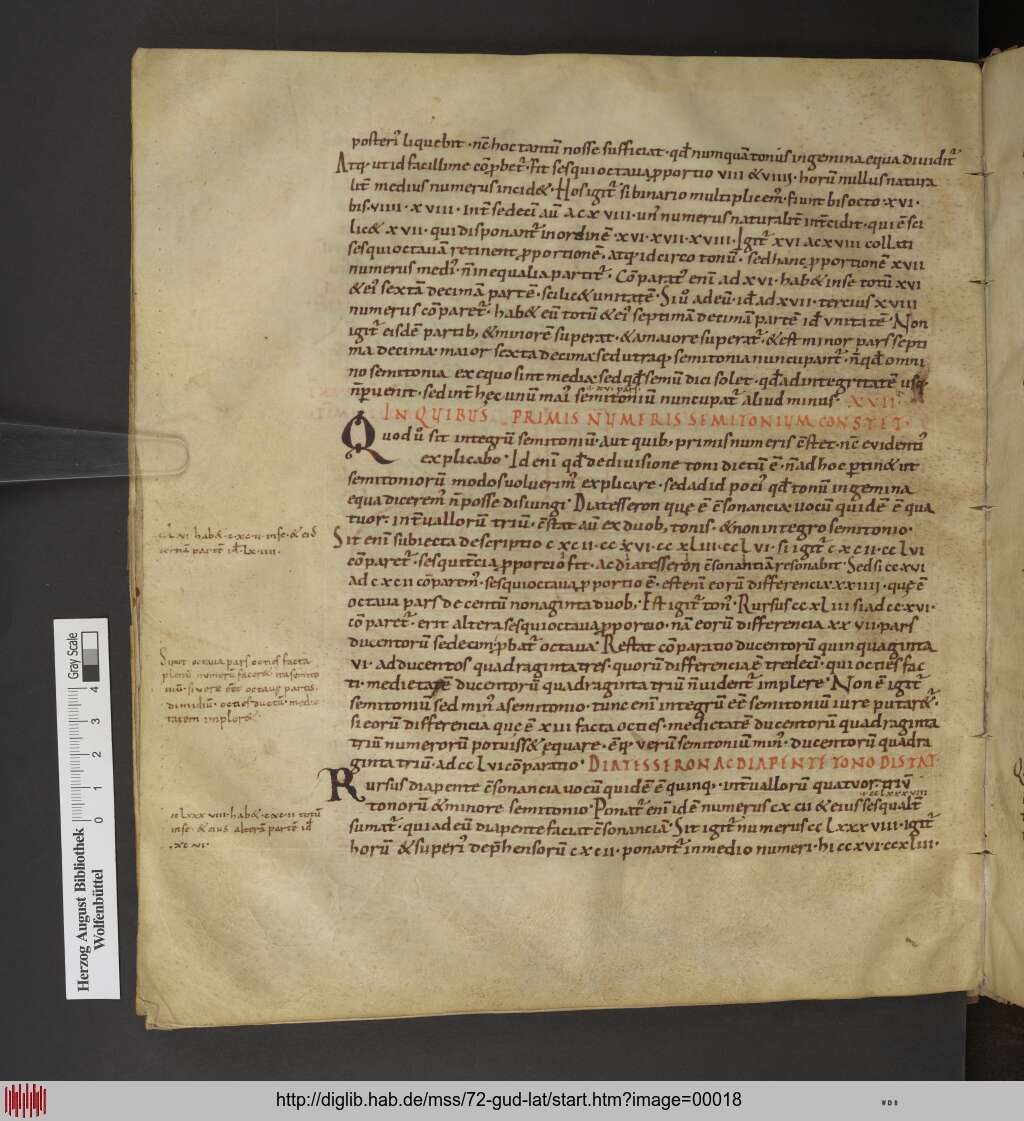 posteri᾽ liquebit · nc̄ hoc tantū nosse sufficiat · qđ numquā tonus in gemina equa diuidit᾽
Atq; ut id facillime cōprobet᾽ · Fit sesquioctaua proportio VIII & VIIII · horū nullus natura
lit̄ medius numerus incide& · Hos igit᾽ si binario multiplicem᾽ · fiunt bis octo · XVI ·
bis · VIIII · XVIII · Int̄ sedeci aū ac XVIII · un᾽ numerus naturalit̄ int̄cidit · qui ē sci
lic& XVII · qui disponant᾽ in ordinē · XVI · XVII · XVIII · Igit᾽ XVI ac XVIII collati
sesquioctauā retinent proportionē · atq; idcirco tonū · sed hanc proportionē XVII
numerus medi᾽ · n̄ in equalia partit᾽ · Cōparat᾽ eni ad XVI · hab& in se totū XVI
& ei᾽ sextā decimā partē · scilic& unitatē · Si u᾽ ad eū · id ad XVII · tercius XVIII
numerus cōparet᾽ · hab& eū totū & ei᾽ septimā decimā partē id unitatē · Non
igit᾽ eisdē partib; & minorē superat · & a maiore superat᾽ · & est minor pars septi
ma decima · maior sexta decima · sed utraq; semitonia nuncupant᾽ · n̄ qđ omni
no semitonia ex equo sint media · sed qđ semū dici solet · qđ ad integritatē usq;
n̄ puenit · sed int̄ hec unū mai᾽ semitoniū nuncupat᾽ aliud minus · XVII
IN QUIBUS PRIMIS NUMERIS SEMITONIUM CONSTET ·
Quod u᾽ sit integrū semitoniū · Aut quib; primis numeris c̄stet · nc̄ euidenti᾽
explicabo · Id eni qđ de diuisione toni dictū ē · n̄ ad hoc ptin& ut
semitoniorū modos uoluerim᾽ explicare · sed ad id poci᾽ qđ tonū in gemina
equa dicerem᾽ n̄ posse disiungi · Diatesseron que ē c̄sonancia uocū quidē ē qua
tuor · int̄uallorū triū · c̄stat aū ex duob; tonis · & non integro semitonio ·
Sit eni subiecta descriptio CXCII · CCXVI · CCXLIII · CCLVI · si igit᾽ CXCII · CCLVI
cōparet᾽ · sesquit̄cia proportio fit · ac diatesseron c̄sonantiā resonabit · Sed si CCXVI
ad CXCII cōparem᾽ · sesquioctaua proportio ē · est eni eorū differencia XXIIII · que ē
octaua pars de centū nonaginta duob; · Est igit᾽ ton᾽ · Rursus CCXLIII si ad CCXVI ·
cōparet᾽ · erit altera sesquioctaua proportio · nā eorū differencia XXVII · pars
ducentorū sedecim · pbat᾽ octaua · Restat cōparatio ducentorū quinquaginta
VI · ad ducentos quadraginta tres · quorū differencia ē tredeci · qui octies fac
ti · medietatē ducentorū quadraginta triū n̄ uident᾽ implere · Non ē igit᾽
semitoniū sed min᾽ a semitonio · tunc eni integrū eē semitoniū iure putare& ·
si eorū differencia que ē XIII facta octies · medietatē ducentorū quadraginta
triū numerorū potuiss& equare · ēq; verū semitoniū min᾽ · ducentorū quadra
ginta triū · ad CCLVI cōparatio · DIATESSERON AC DIAPENTE TONO DISTAT
Rursus diapente c̄sonancia uocū quidē ē quinq; · int̄uallorū quatuor · triū
tonorū & minore semitonio · Ponat᾽ eni idē numerus CXCII & eius sesqualt᾽
sumat᾽ · qui ad eū diapente faciat c̄sonanciā · Sit igit᾽ numerus CCLXXXVIII · igit᾽
horū & superi᾽ dep̄hensorū CXCII · ponant᾽ in medio numeri · hi CCXVI · CCXLIII ·
CCLVI hab& · CXCII · in se · & ei᾽
t̄ciam partē id LXIIII ·
Sicut octaua pars octies facta
plenū numerū facere · ita semito
niū · si uere eēt octaue partis ·
dimidiū · octies ductū · medie
tatem impleret
CCLXXXVIII · hab& · CXCII totū
in se · & eius alterā partē id
· XCVI ·
Herzog August Bibliothek
Wolfenbüttel
Gray Scale
0 1 2 3 4
http://diglib.hab.de/mss/72-gud-lat/start.htm?image=00018